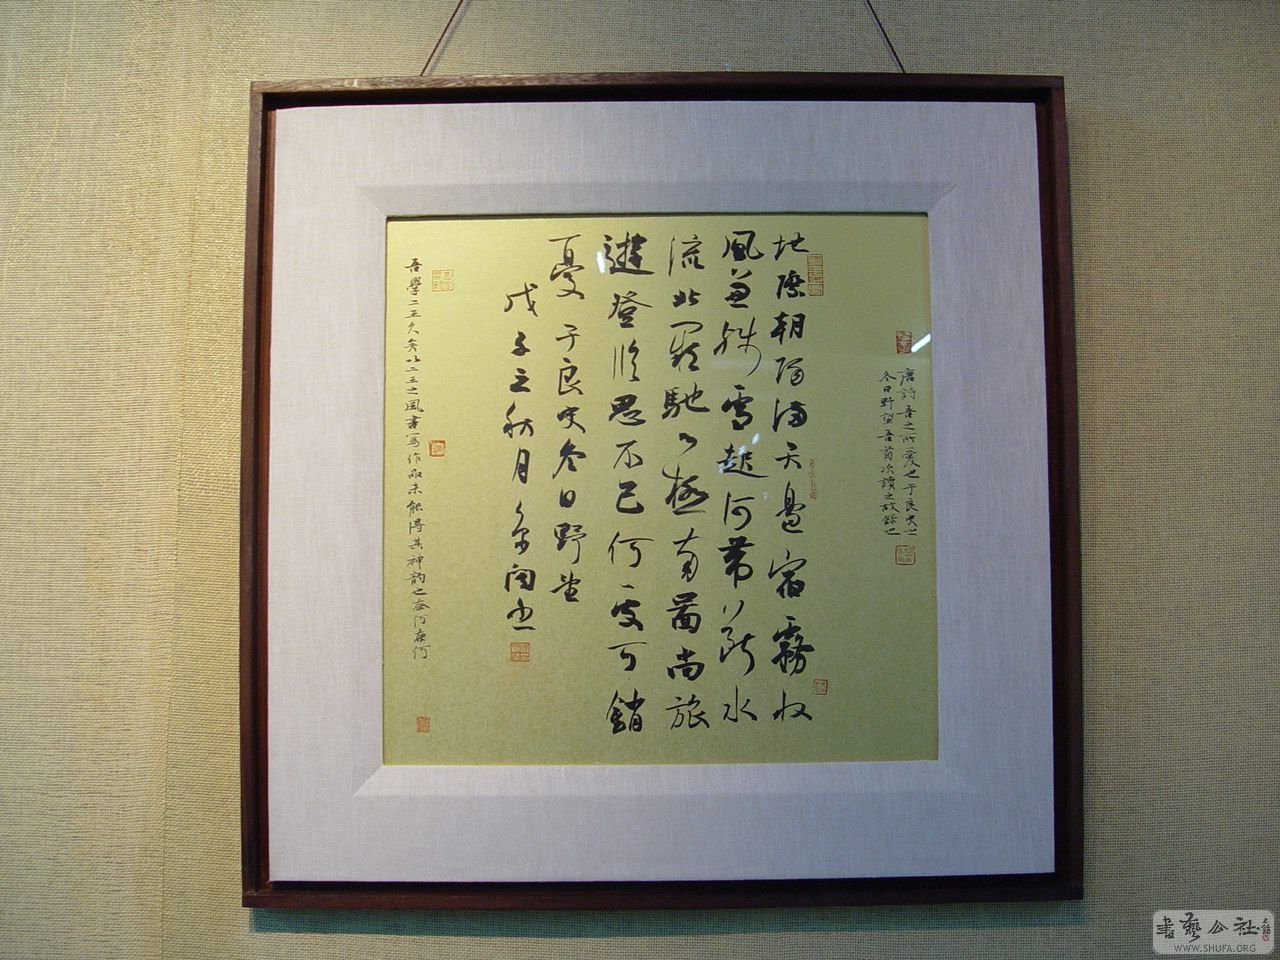 唐詩吾之所愛也于良史之
冬日野望吾首次讀之故錄之
地際朝陽滿天邊宿霧收
風兼殘雪起河帶斷冰
流北闕馳心極南圖尚旅
遊登臨思不已何處可銷
憂 于良史冬日野望
戊子之秋月書
吾學二王久矣以二王之風書寫作品未能得其神韵之奈何奈何
書藝公社
WWW.SHUFA.ORG